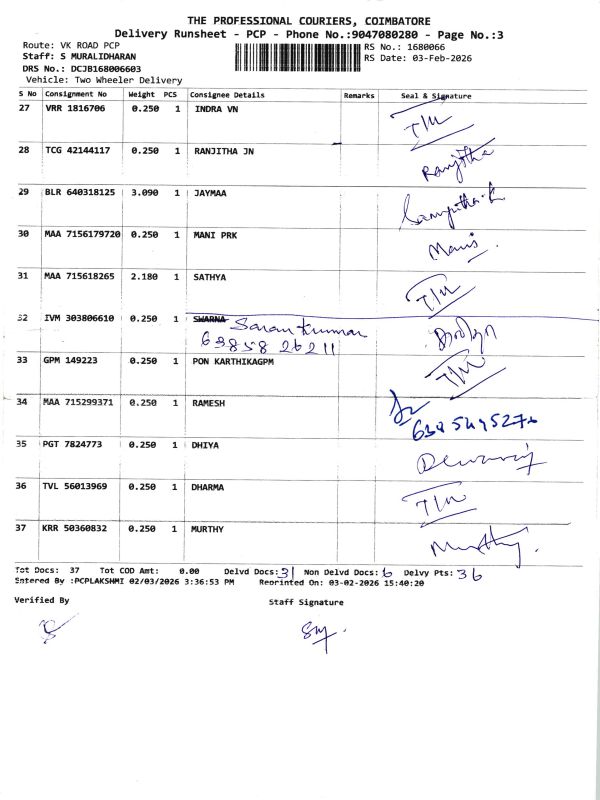 THE PROFESSIONAL COURIERS, COIMBATORE
Delivery Runsheet - PCP - Phone No.:9047080280 - Page No.:3
Route: VK ROAD PCP
RS No.: 1680066
Staff: S MURALIDHARAN
RS Date: 03-Feb-2026
DRS No.: DCJB168006603
Vehicle: Two Wheeler Delivery
S No Consignment No Weight PCS Consignee Details Remarks Seal & Signature
27 VRR 1816706 0.250 1 INDRA VN T/M
28 TCG 42144117 0.250 1 RANJITHA JN Ranjitha
29 BLR 640318125 3.090 1 JAYMAA
30 MAA 7156179720 0.250 1 MANI PRK Mani
31 MAA 715618265 2.180 1 SATHYA T/M
32 IVM 303806610 0.250 1 SWARNA Saran kumar
63858 26211
33 GPM 149223 0.250 1 PON KARTHIKAGPM T/M
34 MAA 715299371 0.250 1 RAMESH
35 PGT 7824773 0.250 1 DHIYA
36 TVL 56013969 0.250 1 DHARMA T/M
37 KRR 50360832 0.250 1 MURTHY Murthy.
Tot Docs: 37 Tot COD Amt: 0.00 Delvd Docs: 31 Non Delvd Docs: 6 Delvy Pts: 36
Entered By :PCPLAKSHMI 02/03/2026 3:36:53 PM Reprinted On: 03-02-2026 15:40:20
Verified By Staff Signature